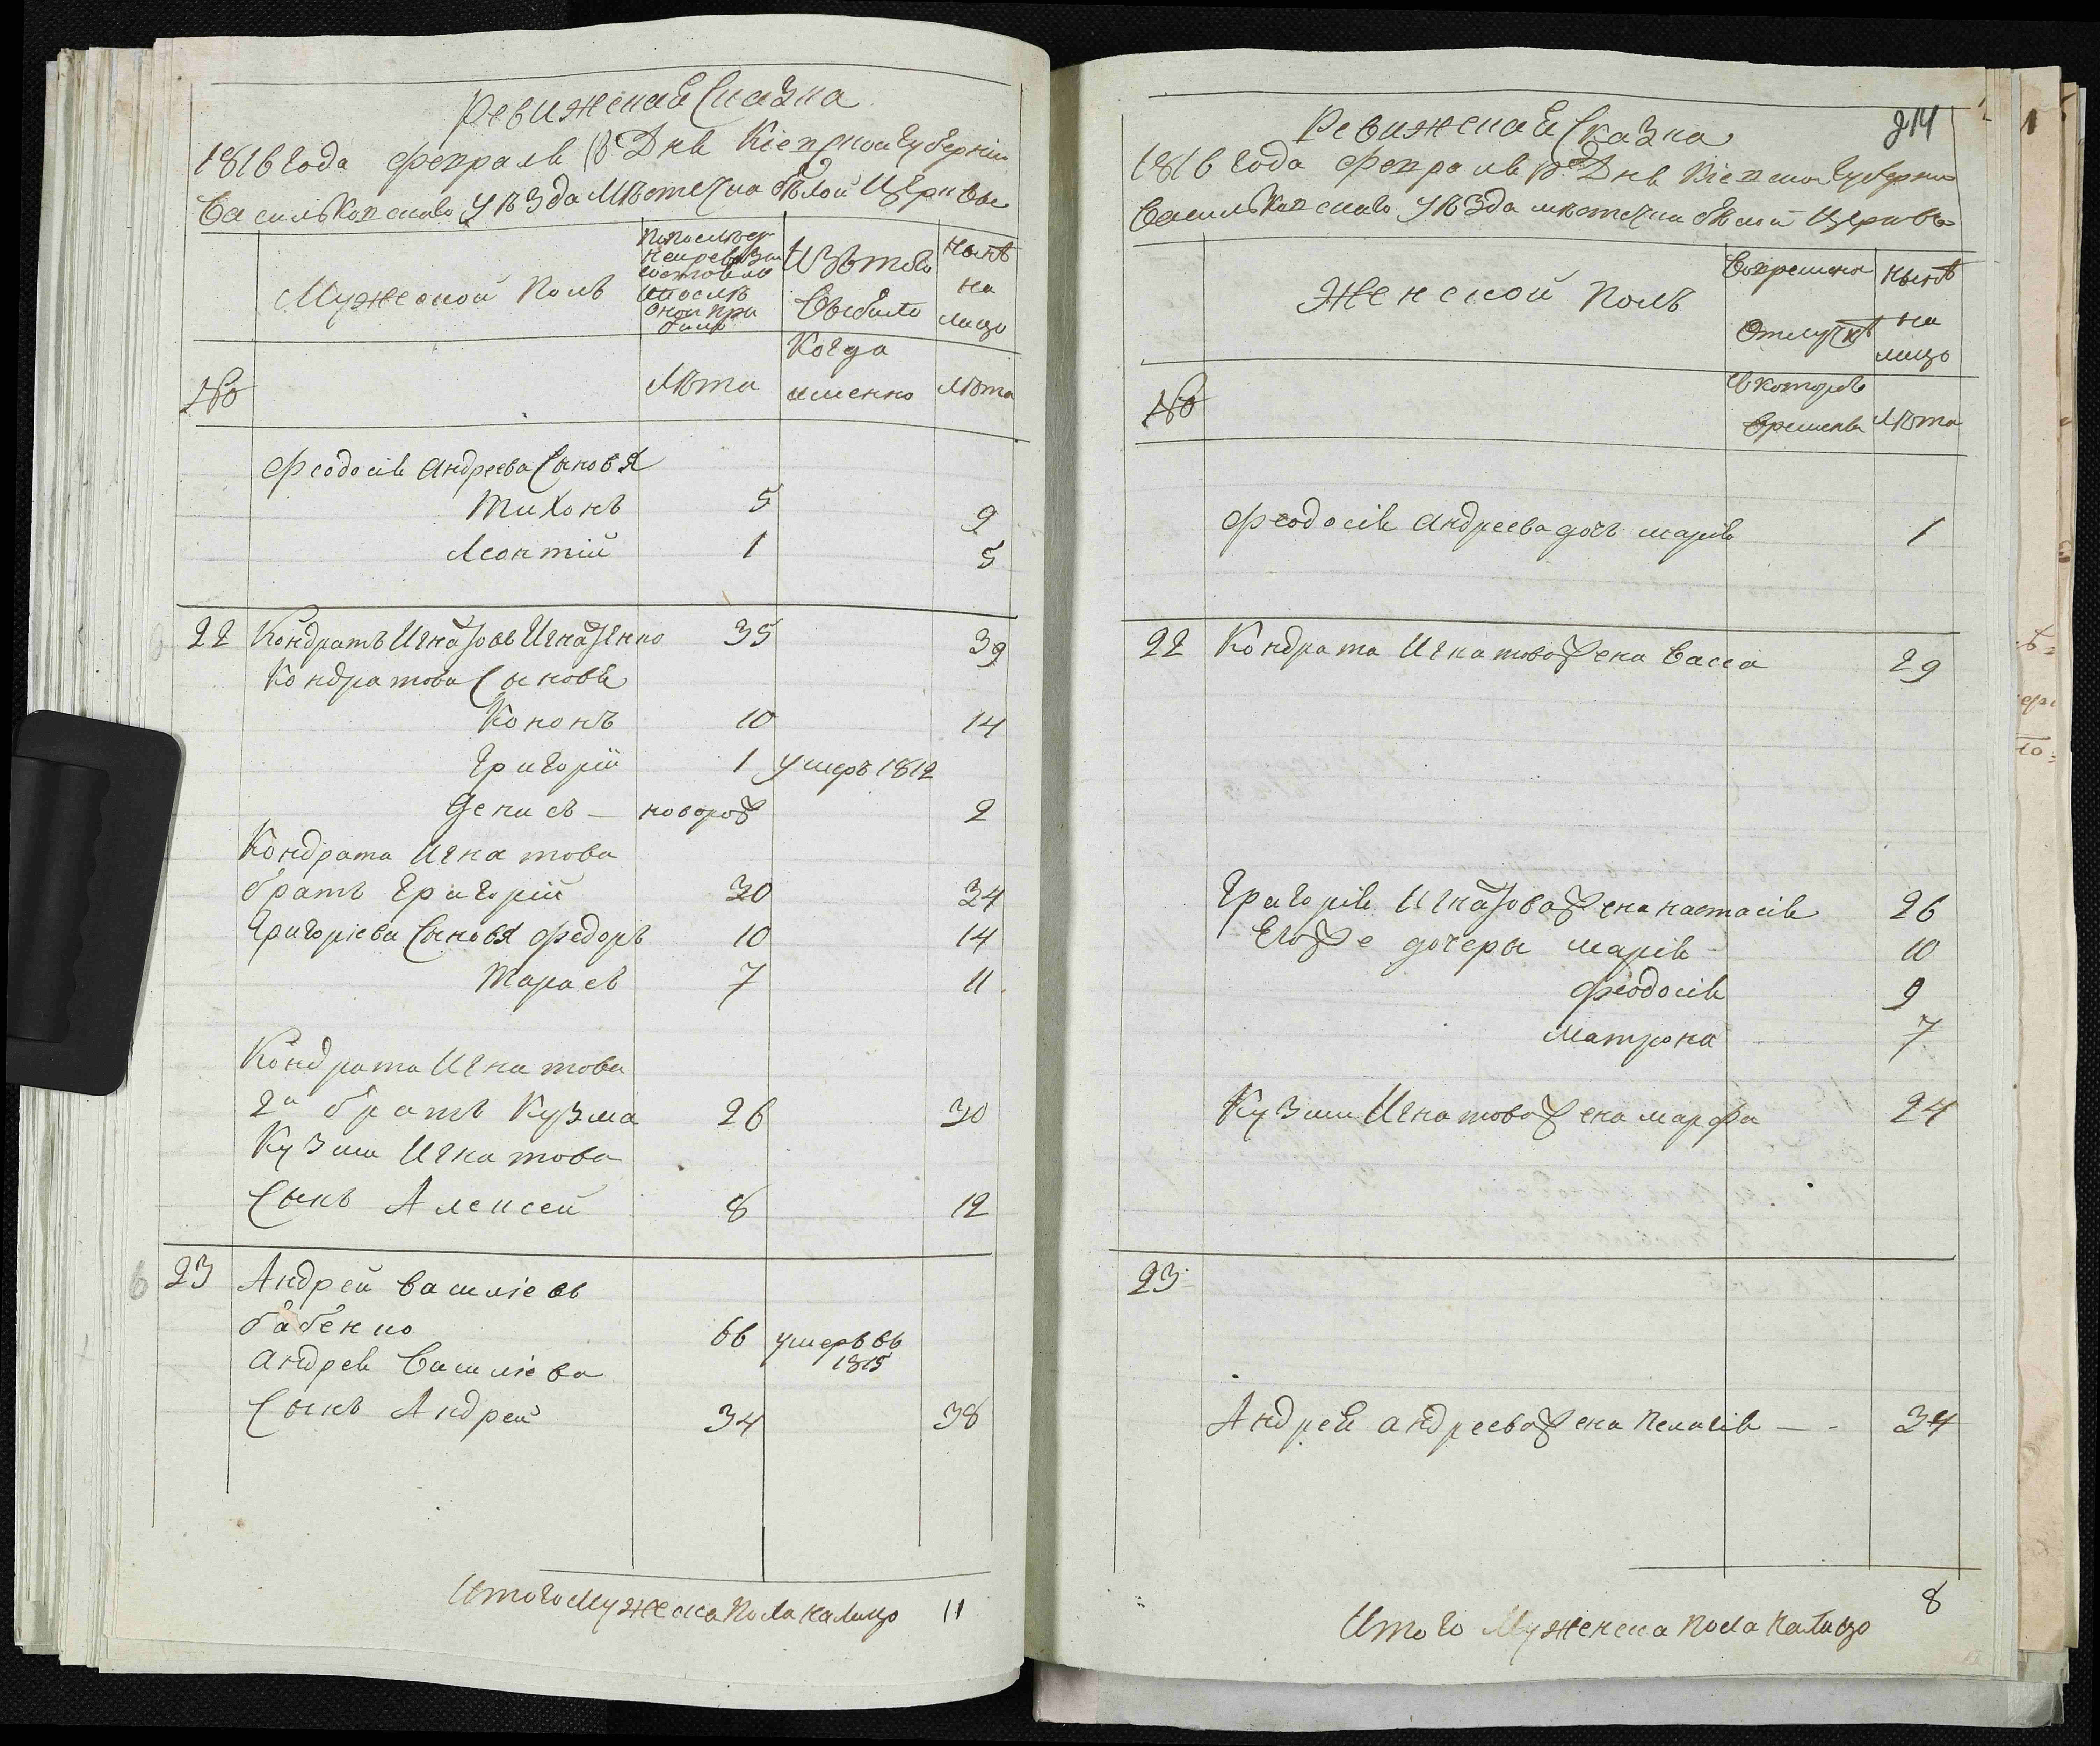 Ревижская Сказка
1816 года февраля 18 Дня Кіевской Губерніи
Васильковскаго уѣзда Мѣстечка бѣлой Церквы
Мужеской полъ
По последней ревизіи состояло и после оной прибыло
Изъ того выбыло
Нынѣ на лицо
№
Лѣта
Когда именно
Лѣта
Феодосія Андреева Сыновя
Тихонъ 5 9
Леонтій 1 5
22 Кондратъ Игнатовъ Игнатенко 35 39
Кондратова Сыновя
Кононъ 10 14
Григорій 1 умеръ 1812
Денисъ — новорож 2
Кондрата Игнатова
братъ Григорій 30 34
Григоріева Сыновя Федоръ 10 14
Тарасъ 7 11
Кондрата Игнатова
2й братъ Кузма 26 30
Кузмы Игнатова
Сынъ Алексей 8 12
6 23 Андрей Василіевъ
бабенко 66 умеръ въ 1815
Андрея Василіева
Сынъ Андрей 34 38
Итого Мужеска пола налицо 11
214
Ревижская Сказка
1816 года февраля 18 Дня Кіевской Губерніи
Васильковскаго уѣзда мѣстечка бѣлой Церквы
Женской полъ
Во временной отлучкѣ
Нынѣ на лицо
№
С котораго времени
Лѣта
Феодосія Андреева дочь марія 1
22 Кондрата Игнатова жена Васса 29
Григорія Игнатова жена настасія 26
Егоже дочеры марія 10
Феодосія 9
Матрона 7
Кузмы Игнатова жена марфа 24
23
Андрея андреева жена Пелагія — - 34
Итого Муженска пола налицо 8